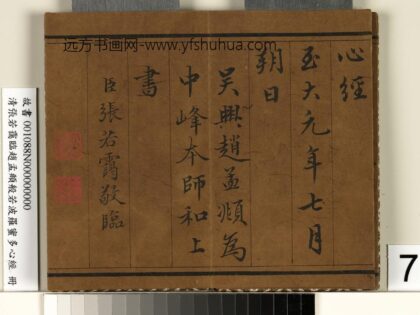 远方书画网-www.yfshuhua.com
心經
至大元年七月
朔日
吳興趙孟頫為
中峰本師和上
書
臣張若靄敬臨
故書001088N000000000
清張若靄臨趙孟頫般若波羅蜜多心經 冊
7